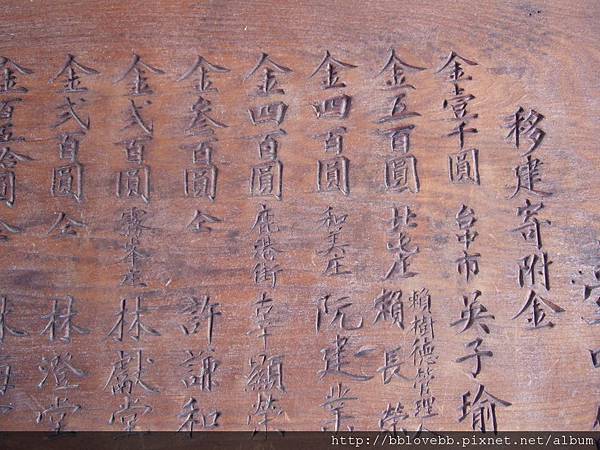 移建寄附金
金壹千圓 台中市 吳子瑜
賴樹德管理人
金五百圓 北屯庄 賴長榮
金四百圓 和美庄 阮建業
金四百圓 鹿港街 辜顯榮
金叄百圓 仝 許謙和
金弍百圓 霧峯庄 林獻堂
金弍百圓 仝 林澄堂
金百五拾圓 仝 林
http://bblovebb.pixnet.net/album